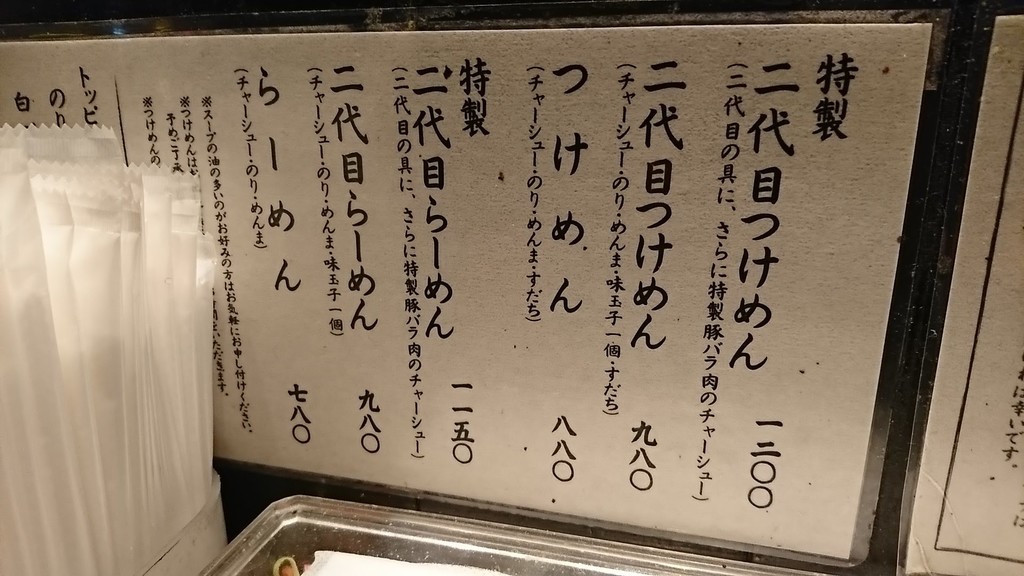 特製
二代目つけめん 一二〇〇
(二代目の具に、さらに特製豚バラ肉のチャーシュー)
二代目つけめん 九八〇
(チャーシュー・のり・めんま・味玉子一個・すだち)
つけめん 八八〇
(チャーシュー・のり・めんま・すだち)
特製
二代目らーめん 一一五〇
(二代目の具に、さらに特製豚バラ肉のチャーシュー)
二代目らーめん 九八〇
(チャーシュー・のり・めんま・味玉子一個)
らーめん 七八〇
(チャーシュー・のり・めんま)
※スープの油の多いのがお好みの方はお気軽にお申し付けください。
※つけめんは
※つけめんの
トッピ
のり
白
は幸いです。